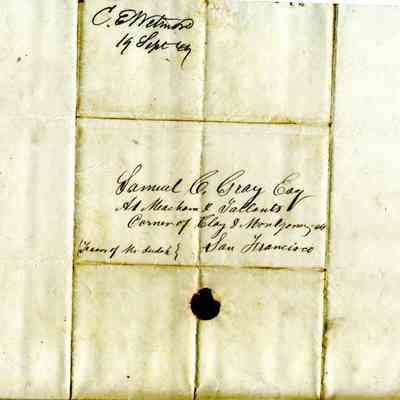 C. E. Wetmore
19 Sept 49
Samuel C. Gray Esq
At Meacham & Tallants
Corner of Clay & Montgomery sts
San Francisco
of Mr